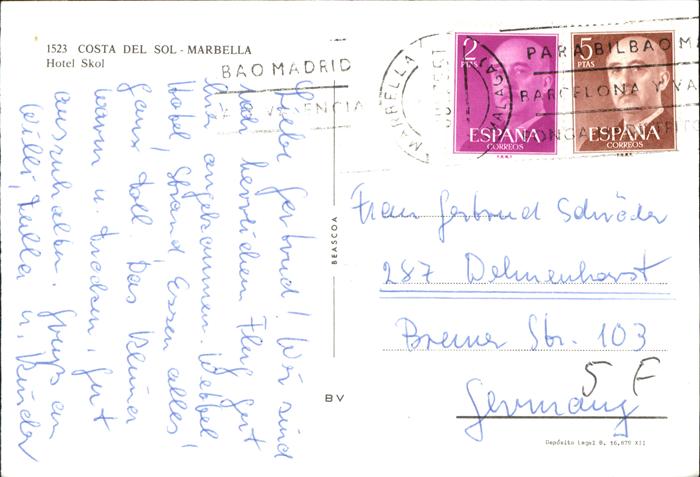 1523 COSTA DEL SOL - MARBELLA
Hotel Skol
BAO MADRID
VALENCIA
MARBELLA
MALAGA
2
PTAS
ESPAÑA
CORREOS
F.N.M.T.
5
PTAS
ESPAÑA
CORREOS
F.N.M.T.
PARA BILBAO MA
BARCELONA Y VA
Liebe Gertrud! Wir sind
nach herrlichem Flug gut
hier angekommen.
Hotel, Strand Essen alles
ganz toll! Das Klima
warm u. trocken, gut
auszuhalten. Gruß an
Willi, Julla u. Kinder
BEASCOA
BV
Frau Gertrud Schröder
287 Delmenhorst
Bremer Str. 103
5 F
Germany
Depósito Legal B. 16.879 XII